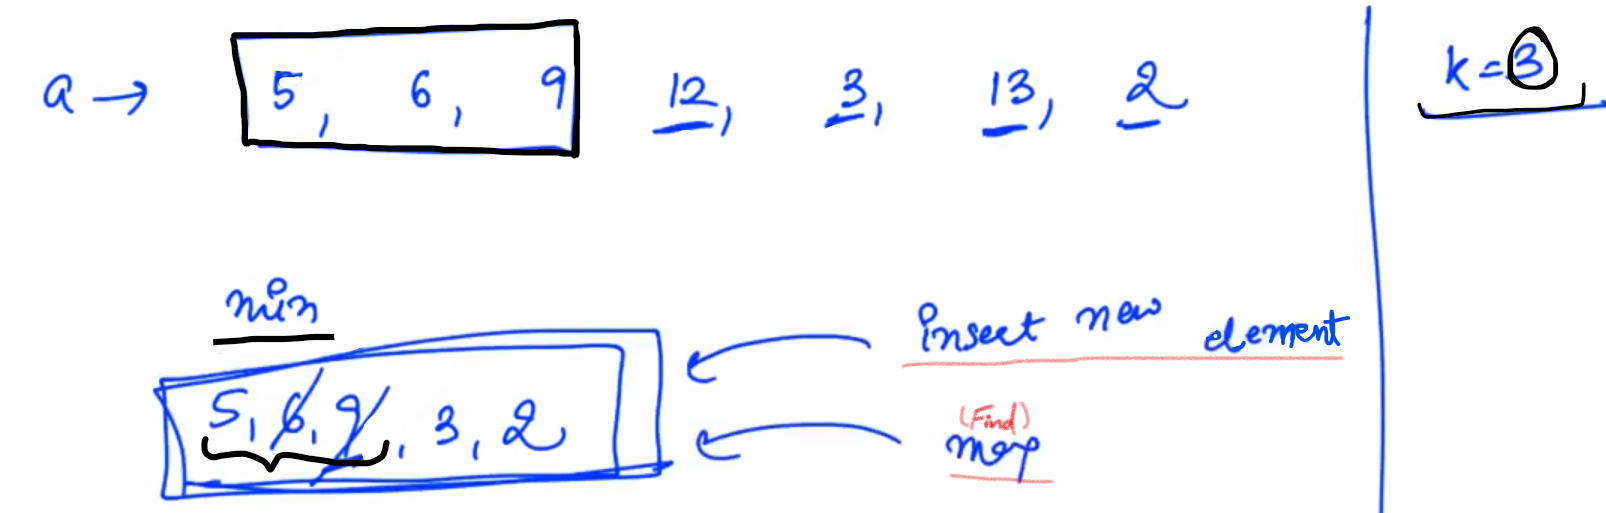 a → 5, 6, 9 12, 3, 13, 2
k = 3
min
5, 6, 9, 3, 2
insert new element
(Find)
max